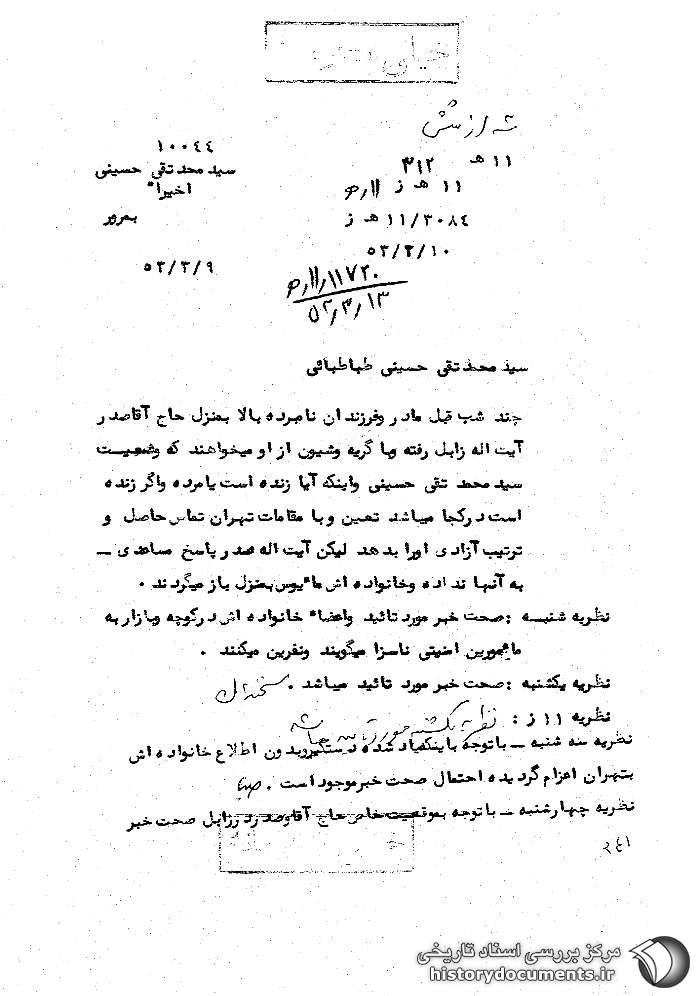 خیلی
۱۰۰۴۴
سید محمد تقی حسینی
اخیرا"
بمرور
۵۳/۳/۹
۱۱ هـ ۳۱۲
۱۱ هـ ز
۱۱/۳۰۸۴ هـ ز
۵۳/۳/۱۰
۱۱۷۲۰/۱۱هـ
۵۳/۳/۱۳
سید محمد تقی حسینی طباطبائی
چند شب قبل مادر وفرزندان نامبرده بالا بمنزل حاج آقاصدر
آیت اله زابل رفته وبا گریه وشیون از او میخواهند که وضعیت
سید محمد تقی حسینی واینکه آیا زنده است یامرده واگر زنده
است درکجا میباشد تعیین وبا مقامات تهران تماس حاصل و
ترتیب آزادی اورا بدهد لیکن آیت اله صدر پاسخ مساعدی ــ
به آنها نداده وخانواده اش مأیوس بمنزل باز میگردند .
نظریه شنبه : صحت خبر مورد تائید واعضاء خانواده اش درکوچه وبازار به
مأمورین امنیتی ناسزا میگویند ونفرین میکنند .
نظریه یکشنبه : صحت خبر مورد تائید میباشد .
نظریه ۱۱ ز : نظریه یکشنبه مورد تایید میباشد
نظریه سه شنبه ــ باتوجه باینکه یاد شده دستگیر وبدون اطلاع خانواده اش
بتهران اعزام گردیده احتمال صحت خبر موجود است .
نظریه چهارشنبه ــ باتوجه بموقعیت خاص حاج آقا صدر در زابل صحت خبر
۲۴۱
مرکز بررسی اسناد تاریخی
historydocuments.ir